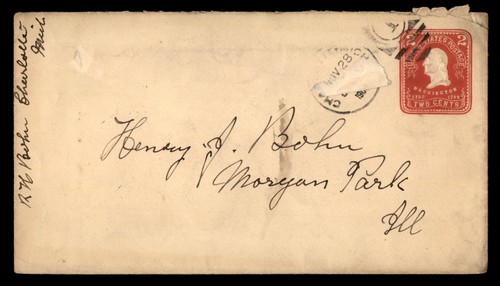 R H Bohn Charlotte
Mich
NOV 28
2 UNITED STATES POSTAGE 2
WASHINGTON
1732 1799
TWO CENTS
Henry J. Bohn
Morgan Park
Ill